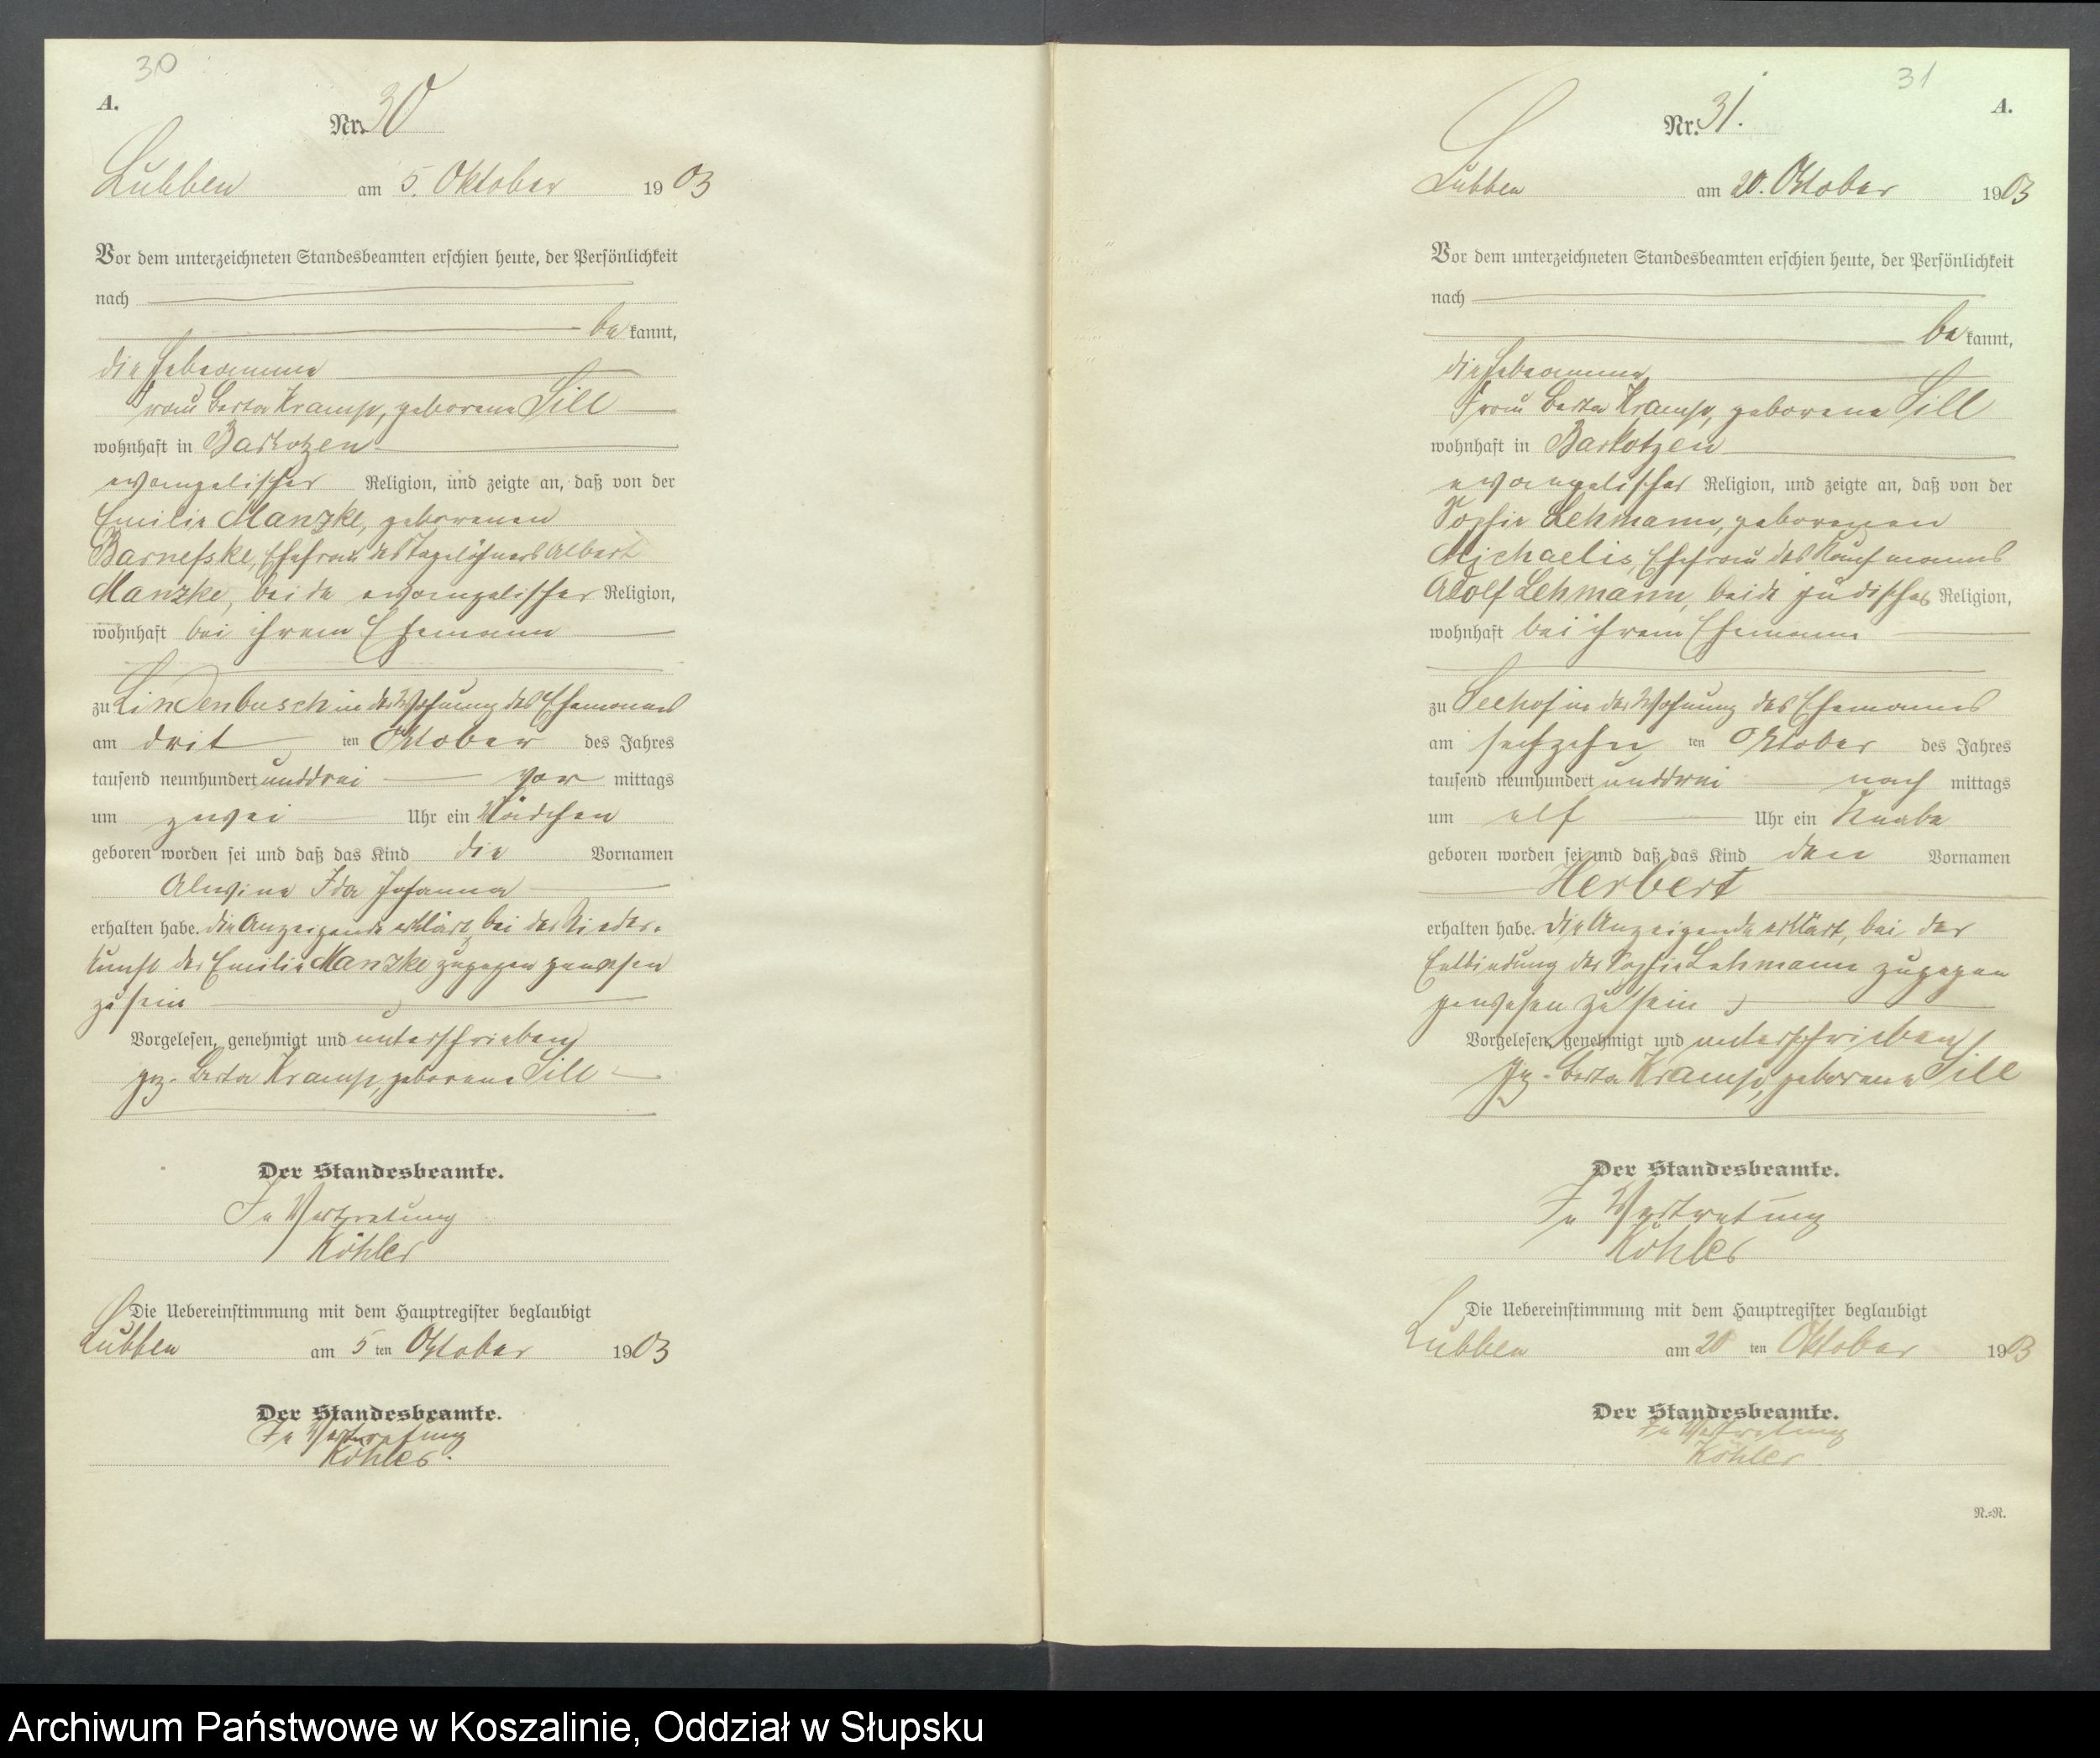 30
A.
Nr. 30
Lübben am 5. Oktober 1903
Vor dem unterzeichneten Standesbeamten erschien heute, der Persönlichkeit
nach
be kannt,
die Hebeamme
Frau Berta Kramp, geborene Sill
wohnhaft in Barkotzen
evangelischer Religion, und zeigte an, daß von der
Emilie Manzke, geborenen
Barnefske, Ehefrau des Tagelöhners Albert
Manzke, beide evangelischer Religion,
wohnhaft bei ihrem Ehemann
zu Lindenbusch in der Wohnung des Ehemannes
am drit ten Oktober des Jahres
tausend neunhundert unddrei vor mittags
um zwei Uhr ein Mädchen
geboren worden sei und daß das Kind die Vornamen
Alwine Ida Johanna
erhalten habe. die Anzeigende erklärt, bei der Nieder-
kunft der Emilie Manzke zugegen gewesen
zu sein
Vorgelesen, genehmigt und unterschrieben
gez. Berta Kramp, geborene Sill
Der Standesbeamte.
In Vertretung
Köhler
Die Uebereinstimmung mit dem Hauptregister beglaubigt
Lübben am 5 ten Oktober 1903
Der Standesbeamte.
In Vertretung
Köhler.
31
A.
Nr. 31.
Lübben am 20. Oktober 1903
Vor dem unterzeichneten Standesbeamten erschien heute, der Persönlichkeit
nach
be kannt,
die Hebeamme
Frau Berta Kramp, geborene Sill
wohnhaft in Barkotzen
evangelischer Religion, und zeigte an, daß von der
Sophie Lehmann, geborenen
Michaelis, Ehefrau des Kaufmanns
Adolf Lehmann, beide jüdischer Religion,
wohnhaft bei ihrem Ehemann
zu Seehof in der Wohnung des Ehemannes
am sechzehn ten Oktober des Jahres
tausend neunhundert unddrei nach mittags
um elf Uhr ein Knabe
geboren worden sei und daß das Kind den Vornamen
Herbert
erhalten habe. die Anzeigende erklärt, bei der
Entbindung der Sophie Lehmann zugegen
gewesen zu sein
Vorgelesen, genehmigt und unterschrieben
gez. Berta Kramp, geborene Sill
Der Standesbeamte.
In Vertretung
Köhler
Die Uebereinstimmung mit dem Hauptregister beglaubigt
Lübben am 20 ten Oktober 1903
Der Standesbeamte.
In Vertretung
Köhler
N.=N.
Archiwum Państwowe w Koszalinie, Oddział w Słupsku